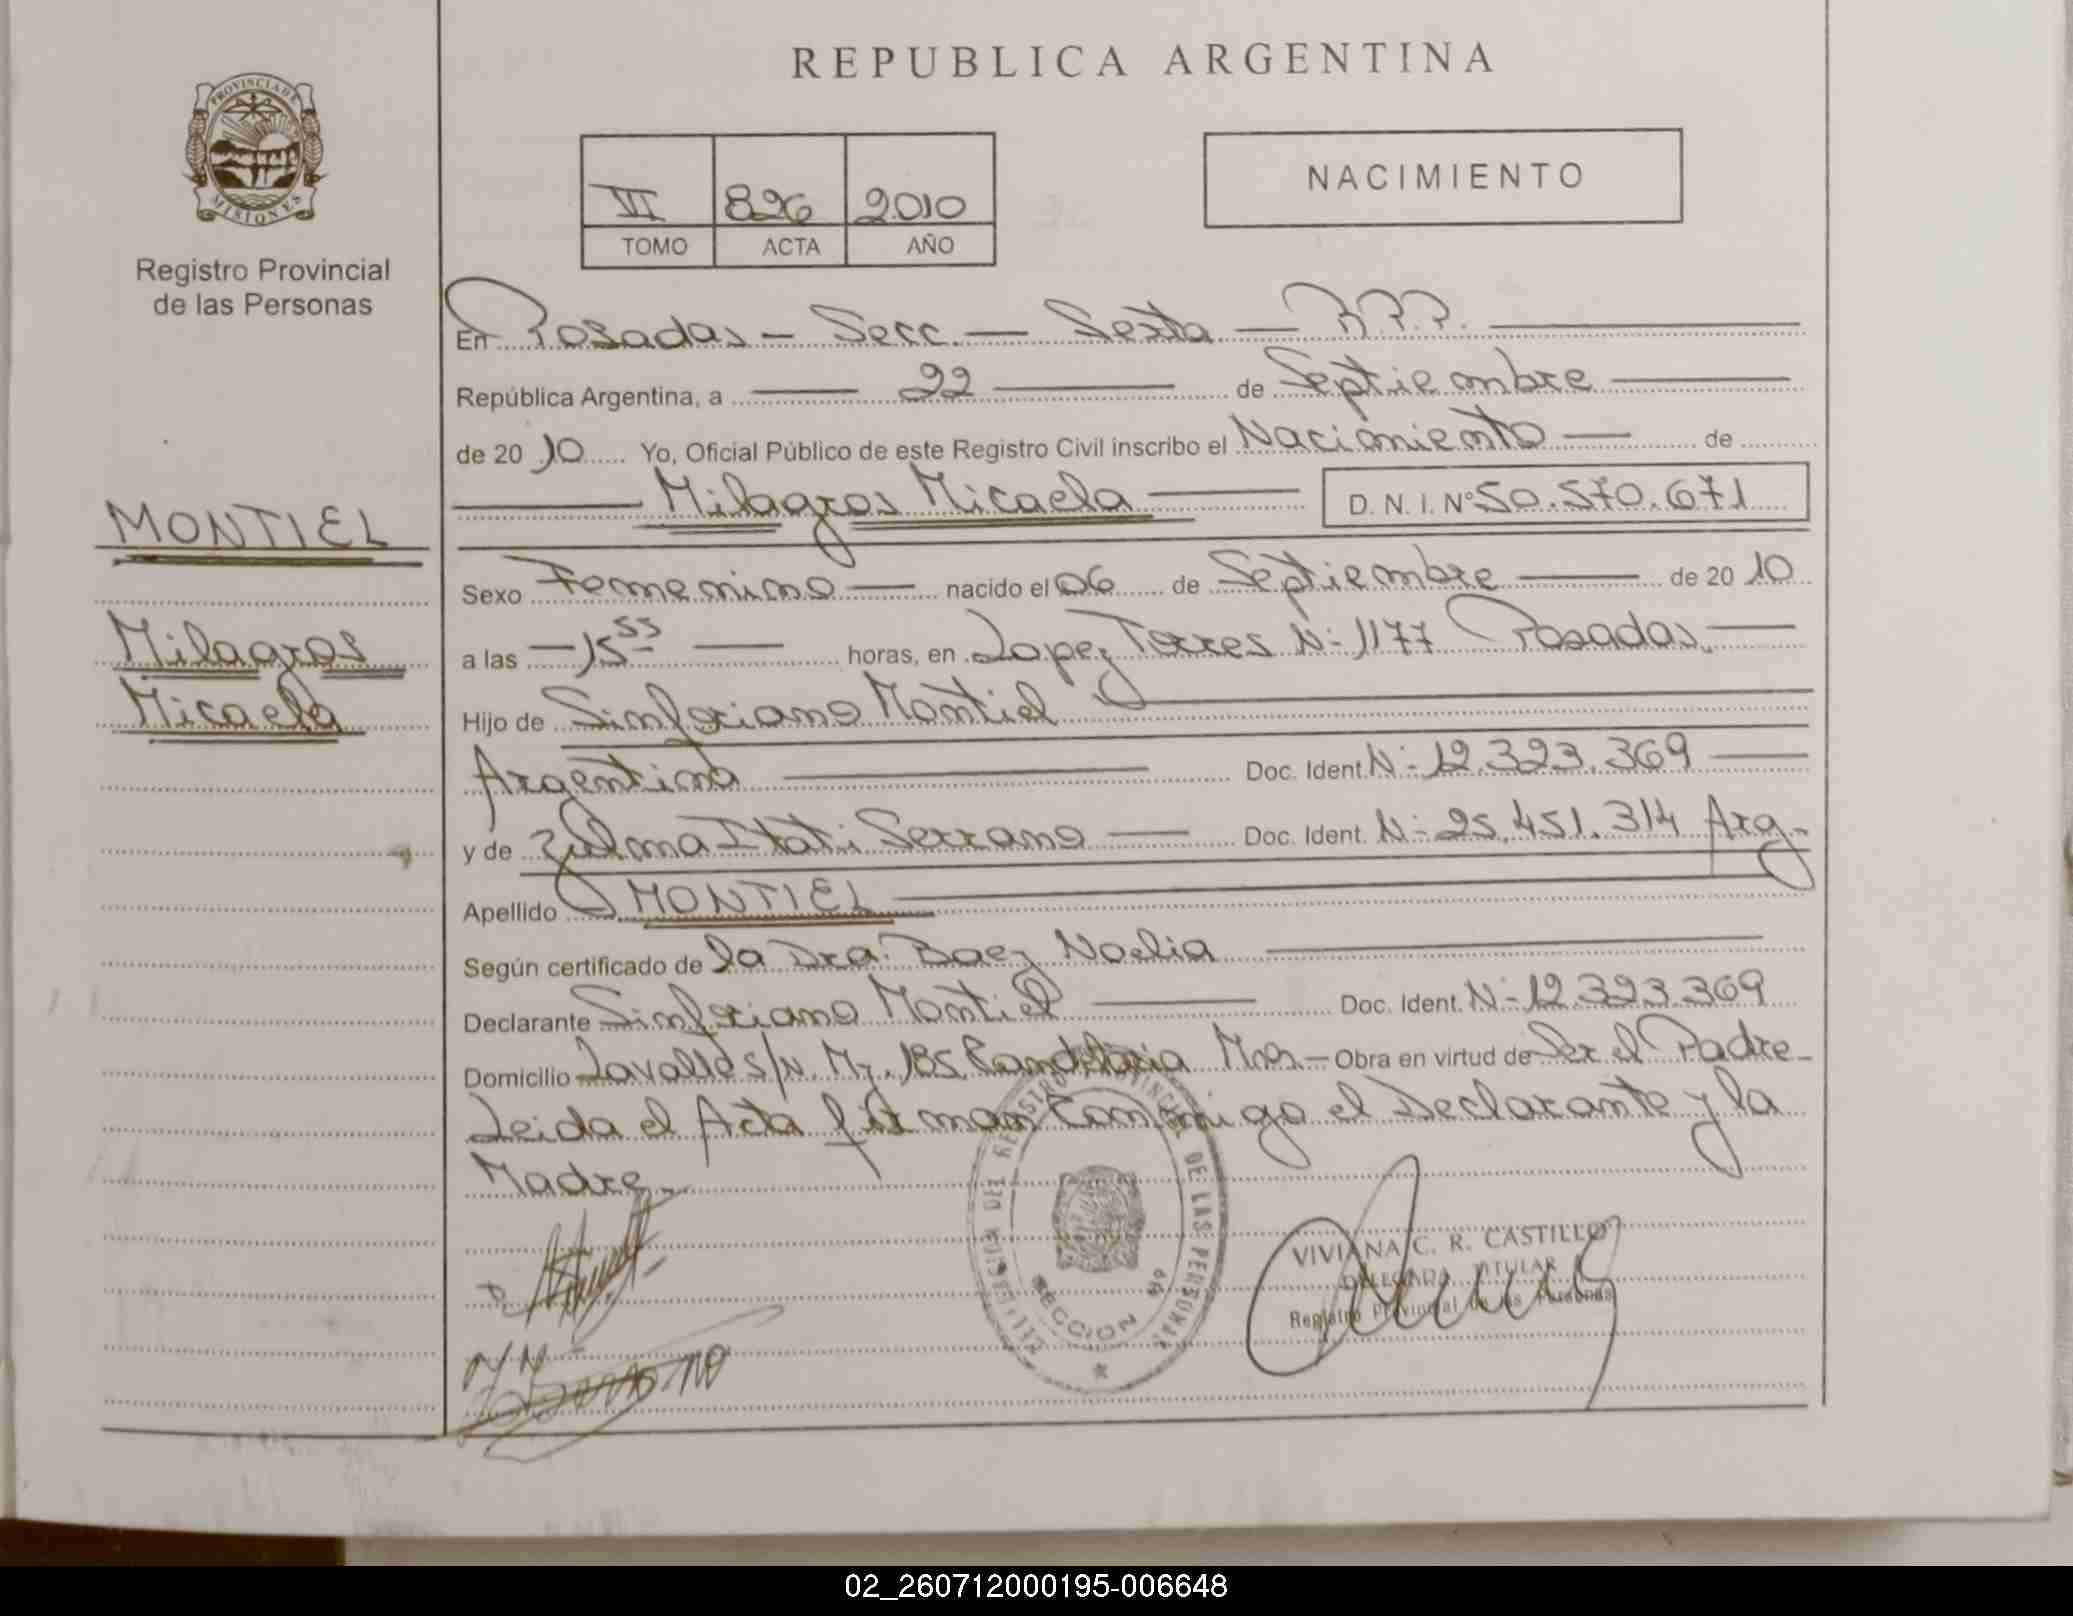 REPUBLICA ARGENTINA
PROVINCIA DE
MISIONES
Registro Provincial
de las Personas
VI 826 2010
TOMO ACTA AÑO
NACIMIENTO
En Posadas - Secc. - Sexta - R.P.P.
República Argentina, a 22 de Septiembre
de 2010 Yo, Oficial Público de este Registro Civil inscribo el Nacimiento de
Milagros Micaela D. N. I. Nº 50.570.671
MONTIEL
Milagros
Micaela
Sexo Femenino nacido el 06 de Septiembre de 2010
a las 15 55 horas, en Lopez Torres N- 1177 Posadas.
Hijo de Sinforiano Montiel
Argentino Doc. Ident. N- 12.323.369
y de Zulma Itati Serrano Doc. Ident. N- 25.451.314 Arg-
Apellido MONTIEL
Según certificado de la Dra. Baez Noelia
Declarante Sinforiano Montiel Doc. Ident. N- 12.323.369
Domicilio Lavalle s/N. Mz. 185 Candelaria Mnes - Obra en virtud de Ser el Padre-
Leida el Acta firman Conmigo el Declarante y la
Madre.-
REGISTRO PROVINCIAL DE LAS PERSONAS
SECCION 6º
VIVIANA C. R. CASTILLO
DELEGADA TITULAR
Registro Provincial de las Personas
02_260712000195-006648